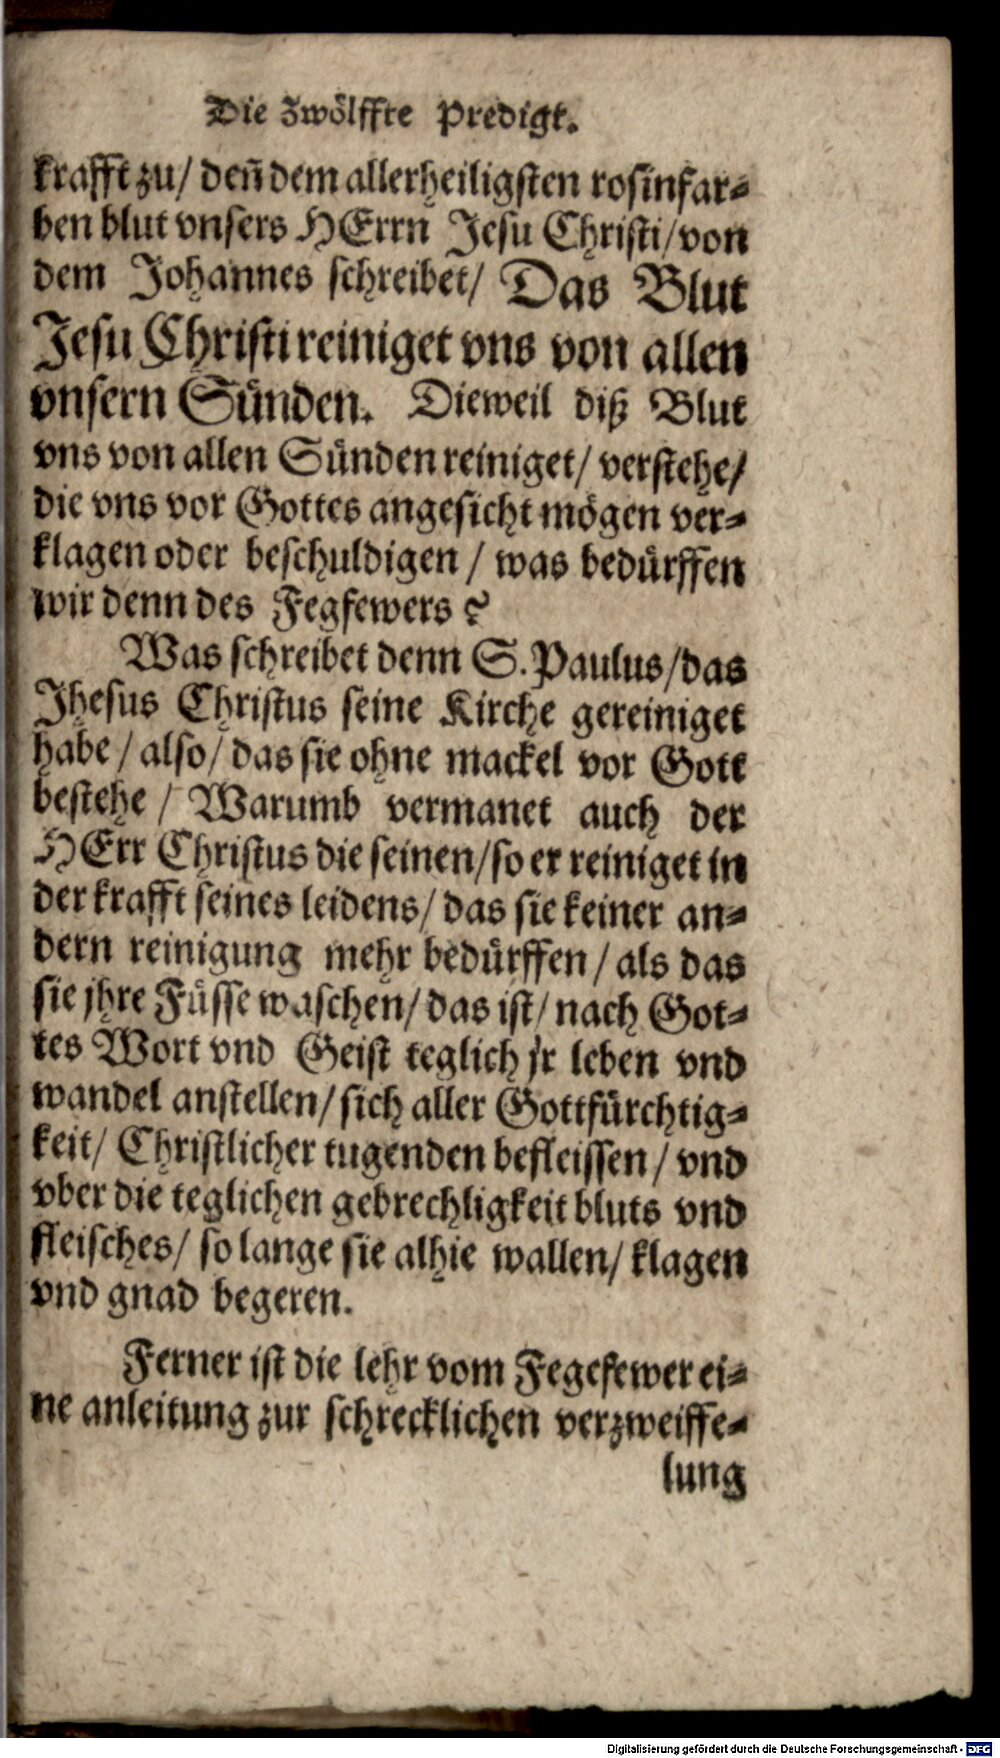 Die zwölffte Predigt.
krafft zu/ deñ dem allerheiligsten rosinfar-
ben blut vnsers HErrn Jesu Christi/ von
dem Johannes schreibet/ Das Blut
Jesu Christi reiniget vns von allen
vnsern Sünden. Dieweil diß Blut
vns von allen Sünden reiniget/ verstehe/
die vns vor Gottes angesicht mögen ver-
klagen oder beschuldigen / was bedürffen
wir denn des Fegfewers?
Was schreibet denn S. Paulus/ das
Jhesus Christus seine Kirche gereiniget
habe / also/ das sie ohne mackel vor Gott
bestehe / Warumb vermanet auch der
HErr Christus die seinen/ so er reiniget in
der krafft seines leidens/ das sie keiner an-
dern reinigung mehr bedürffen / als das
sie jhre Füsse waschen/ das ist/ nach Got-
tes Wort vnd Geist teglich jr leben vnd
wandel anstellen/ sich aller Gottfürchtig-
keit/ Christlicher tugenden befleissen / vnd
vber die teglichen gebrechligkeit bluts vnd
fleisches/ so lange sie alhie wallen/ klagen
vnd gnad begeren.
Ferner ist die lehr vom Fegefewer ei-
ne anleitung zur schrecklichen verzweiffe-
lung
Digitalisierung gefördert durch die Deutsche Forschungsgemeinschaft - DFG